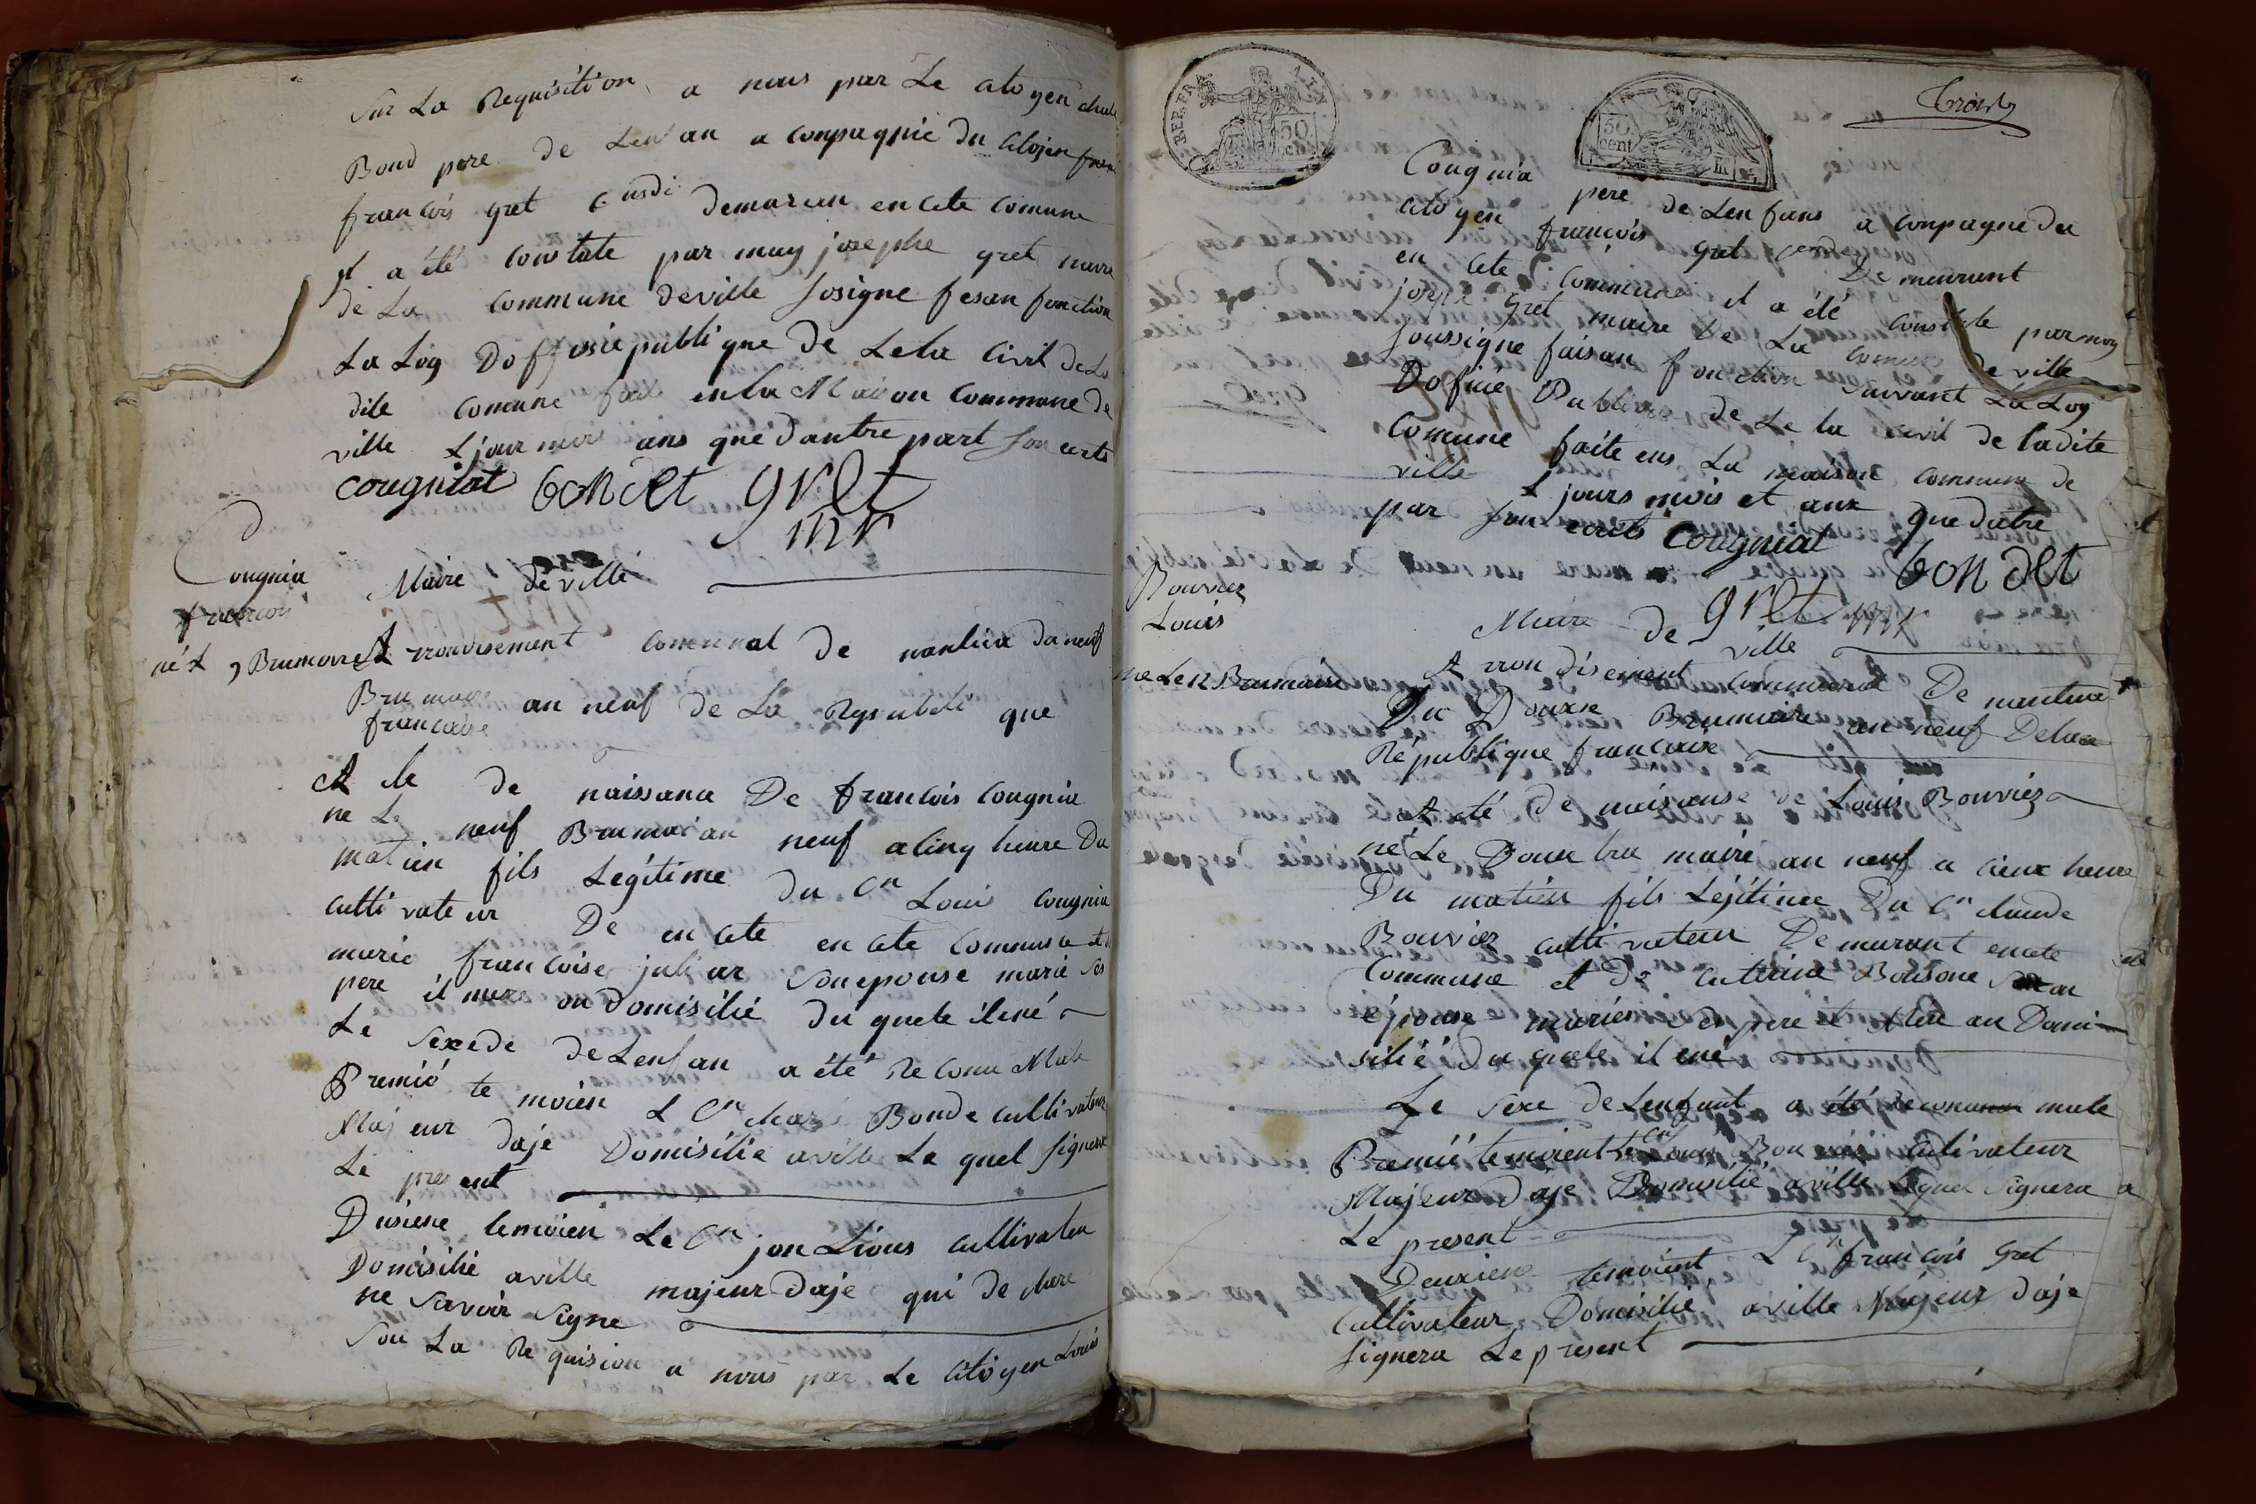 Sur La Requisition a nous par Le citoyen
Boud pere de Lenfan a conpagnie du citoijen
francois gret demaran en cete comune
il a été constate par moy josephe gret maire
de La commune deville sosigne fesan fonction
La Loy Doffisie publique de Leta Civil de La
dite comune fait en la Maison Commune de
ville L jour mois ans que dautre part
cougniat bondet gret
mr
Maire de ville
Cougnia
francois
né L 9 Brumaire
Arrondisement Comunal de nantua du neuf
Brumaire an neuf de La Republique
francaise
Acte de naissance De francois Cougnia
ne Le neuf Brumai an neuf a cinq heure Du
matien fils Legitime du Cn Louis Cougnia
cultivateur De en cete en cete Commune et
marie francoise son epouse marie ses
pere il mere ou domisilié du quele il né
Le Sexe de deLenfan a été Reconu Male
Premié temoien L Cn Boude cultivateur
Majeur daje Domisilie a ville Le quel signera
Le present
Dusiene temoien Le Cn jon Lious cultivateu
Domisilie a ville majeur daje qui declare
ne savoir signe
Sou La Requision a nous par Le citoyen Louis
REP.FRA
50
cent
50
cent
Cougnia pere de Lenfans a conpagne du
citoyen francois gret Demeurent
en cete commune il a été constate par moy
joseph gret maire De La comune De ville
soussigne faisan fonction suivant La Loy
Dofice Publique de Leta civil de ladite
Comune faite ens La maison commune de
ville L jours mois et ans que dotre
par Cougniat bondet
gret mr
Maire de ville
Bouviez
Louis
ne Le 12 Brumaire
Arrondisement Communal De nantua
Du Douxe Brumaire an neuf De la
Républiqne francaise
Acté de naisanse de Louis Bouviez
né Le Doux bru maire an neuf a heure
Du matien fils Lejitime Du Cn claude
Bouviez cultivateur Demurant en cete
Commune et De Cuttrine Bousone son
épouse mariéé ses pere et Mere au Domi
siliéé du quele il né
Le Sexe de Lenfant a été Reconu male
Premié temoient Le Cn Louis Bouviez cultivateur
Majeur daje Domisilié a ville Lequel signera a
Le present
Deuxiene temoient L Cn francois Gret
Cultivateur Domisilié a ville Majeur daje
signera Le present